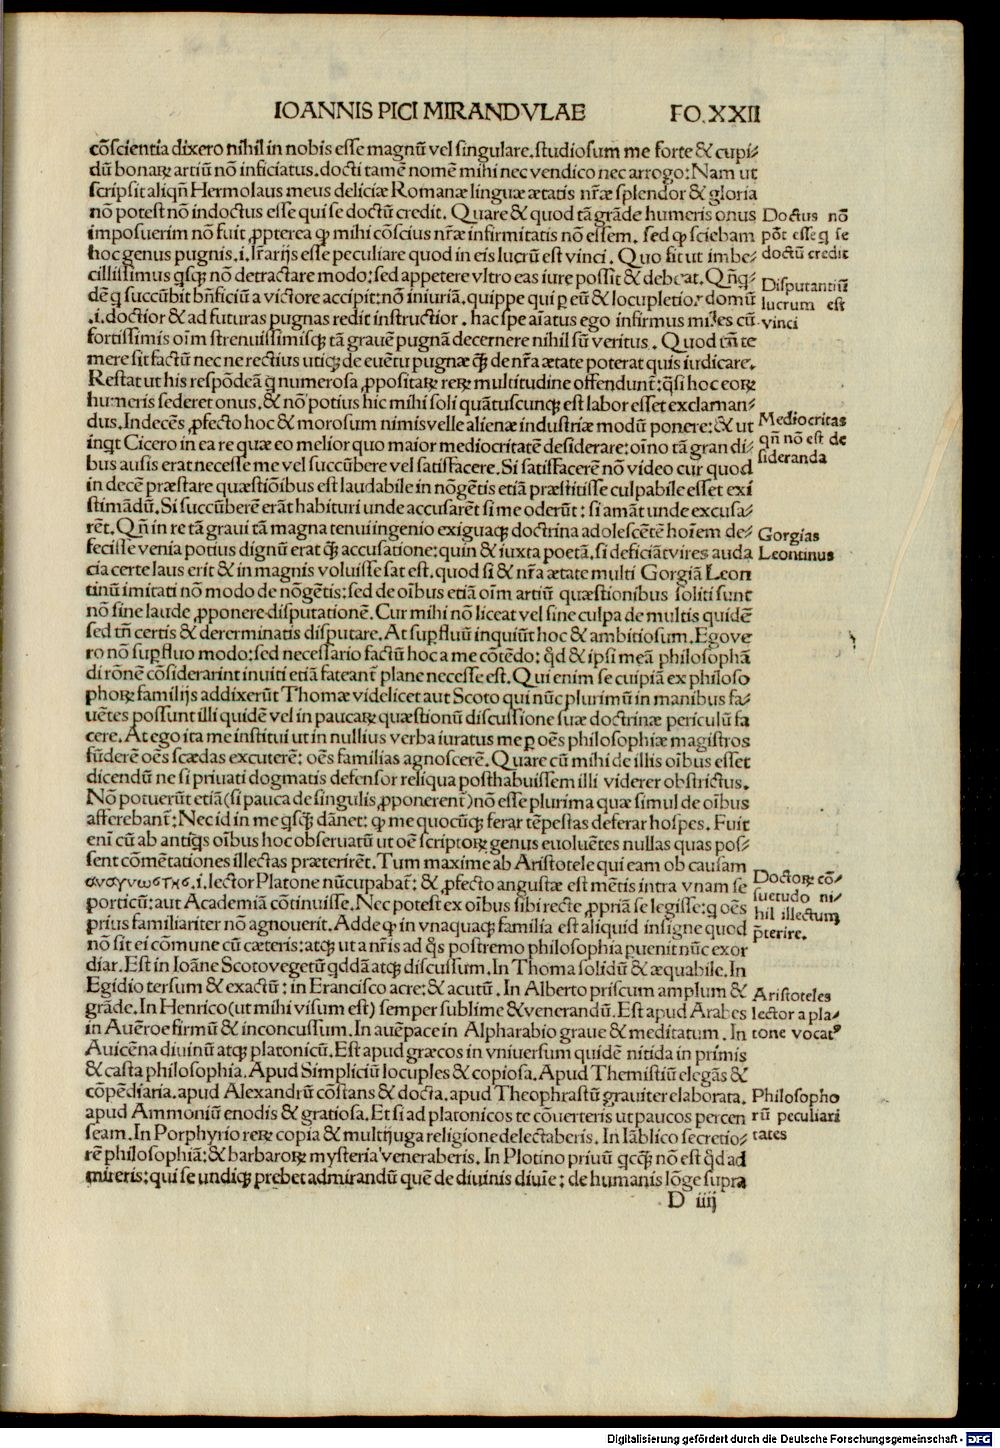 IOANNIS PICI MIRANDVLAE FO.XXII
cōscientia dixero nihil in nobis esse magnū vel singulare.studiosum me forte & cupi-
dū bonaꝝ artiū nō inficiatus.docti tamē nomē mihi nec vendico nec arrogo:Nam ut
scripsit aliqñ Hermolaus meus deliciæ Romanæ linguæ ætatis nr̄æ splendor & gloria
nō potest nō indoctus esse qui se doctū credit. Quare & quod tā grāde humeris onus
imposuerim nō fuit ꝓpterea ꝙ mihi cōscius nr̄æ infirmitatis nō essem. sed ꝙ sciebam
hoc genus pugnis.i.lr̄arijs esse peculiare quod in eis lucrū est vinci. Quo fit ut imbe-
cillissimus qsꝗ nō detractare modo:sed appetere vltro eas iure possit & debeat. Qñq-
dē q succūbit bñficiū a victore accipit:nō iniuriā.quippe qui ꝑ eū & locupletior domū
.i.doctior & ad futuras pugnas redit instructior. hac spe aīatus ego infirmus miles cū
fortissimis oīm strenuissimisꝗ tā grauē pugnā decernere nihil sū veritus. Quod tñ te
mere sit factū nec ne rectius utiꝗ de euētu pugnæ q̄ de nr̄a ætate poterat quis iudicare.
Restat ut his respōdeā q numerosa ꝓpositaꝝ reꝝ multitudine offendunt̄:qsi hoc eoꝝ
humeris sederet onus.& nō potius hic mihi soli quātuscunꝗ est labor esset exclaman-
dus.Indecēs ꝓfecto hoc & morosum nimis velle alienæ industriæ modū ponere:& ut
inqt Cicero in ea re quæ eo melior quo maior mediocritatē desiderare:oīno tā gran di-
bus ausis erat necesse me vel succūbere vel satisfacere. Si satisfacerē nō video cur quod
in decē præstare quæstiōibus est laudabile in nōgētis etiā præstitisse culpabile esset exi
stimādū. Si succūberē erāt habituri unde accusarēt si me oderūt : si amāt unde excusa-
rēt. Qñ in re tā graui tā magna tenui ingenio exiguaꝗ doctrina adolescētē hoīem de-
fecisse venia potius dignū erat q̄ accusatione:quin & iuxta poetā.si deficiāt vires auda
cia certe laus erit & in magnis voluisse sat est.quod si & nr̄a ætate multi Gorgiā Leon
tinū imitati nō modo de nōgētis:sed de oībus etiā oīm artiū quæstionibus soliti sunt
nō sine laude ꝓponere disputationē. Cur mihi nō liceat vel sine culpa de multis quidē
sed tñ certis & dererminatis disputare.At supfluū inquiūt hoc & ambitiosum.Ego ve
ro nō supfluo modo:sed necessario factū hoc a me cōtēdo: qd & ipsi meā philosophā
di rōnē cōsiderarint inuiti etiā fateant̄ plane necesse est. Qui enim se cuipiā ex philoso
phoꝝ familijs addixerūt Thomæ videlicet aut Scoto qui nūc plurimū in manibus fa-
uētes possunt illi quidē vel in paucaꝝ quæstionū discussione suæ doctrinæ periculū fa
cere. At ego ita me institui ut in nullius verba iuratus me ꝑ oēs philosophiæ magistros
fūderē oēs scædas excuterē: oēs familias agnoscerē. Quare cū mihi de illis oībus esset
dicendū ne si priuati dogmatis defensor reliqua posthabuissem illi viderer obstrictus.
Nō potuerūt etiā(si pauca de singulis ꝓponerent̄)nō esse plurima quæ simul de oībus
afferebant̄:Nec id in me qsꝗ dānet: ꝙ me quocūꝗ ferar tēpestas deferar hospes. Fuit
enī cū ab antiqs oībus hoc obseruatū ut oē scriptoꝝ genus euoluētes nullas quas pos-
sent cōmētationes illectas præterirēt. Tum maxime ab Aristotele qui eam ob causam
αναγνωστης.i.lector Platone nūcupabat̄: & ꝓfecto angustæ est mētis intra vnam se
porticū:aut Academiā cōtinuisse. Nec potest ex oībus sibi recte ꝓpriā se legisse:q oēs
prius familiariter nō agnouerit. Adde ꝙ in vnaquaꝗ familia est aliquid insigne quod
nō sit ei cōmune cū cæteris:atꝗ ut a nr̄is ad qs postremo philosophia puenit nūc exor
diar.Est in Ioāne Scoto vegetū qddā atꝗ discussum. In Thoma solidū & æquabile. In
Egidio tersum & exactū : in Francisco acre:& acutū. In Alberto priscum amplum &
grāde. In Henrico(ut mihi visum est) semper sublime & venerandū. Est apud Arabes
in Auēroe firmū & inconcussum. In auēpace in Alpharabio graue & meditatum. In
Auicēna diuinū atꝗ platonicū. Est apud græcos in vniuersum quidē nitida in primis
& casta philosophia. Apud Simpliciū locuples & copiosa. Apud Themistiū elegās &
cōpēdiaria. apud Alexandrū cōstans & docta. apud Theophrastū grauiter elaborata.
apud Ammoniū enodis & gratiosa. Et si ad platonicos te cōuerteris ut paucos percen
seam. In Porphyrio reꝝ copia & multijuga religione delectaberis. In Iāblico secretio-
rē philosophiā:& barbaroꝝ mysteria veneraberis. In Plotino priuū qcꝗ nō est qd ad
mireris:qui se undiꝗ prebet admirandū quē de diuinis diuie : de humanis lōge supra
D iiij
Doctus nō
pōt esse q se
doctū credit
Disputantiū
lucrum est
vinci
Mediocritas
qñ nō est de
sideranda
Gorgias
Leontinus
Doctoꝝ cō-
suetudo ni-
hil illectum
p̄terire.
Aristoteles
lector a pla-
tone vocatꝰ
Philosopho
rū peculiari
tates
Digitalisierung gefördert durch die Deutsche Forschungsgemeinschaft - DFG